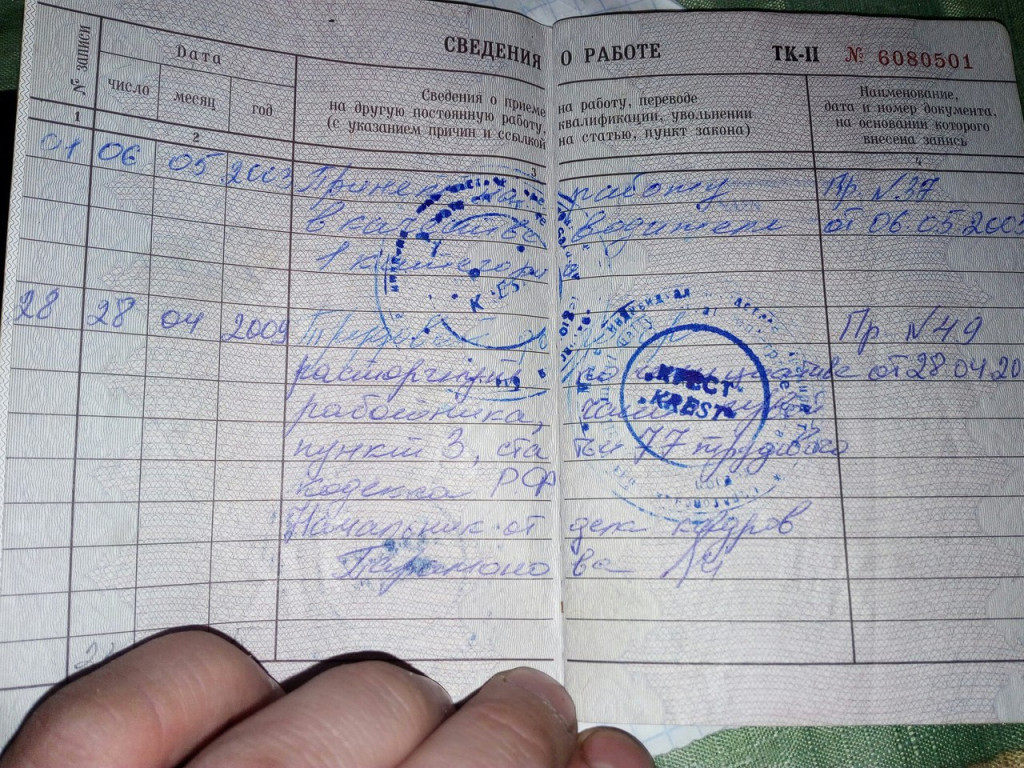 СВЕДЕНИЯ О РАБОТЕ ТК-II № 6080501
№ записи
Дата
число месяц год
Сведения о приеме на работу, переводе
на другую постоянную работу, квалификации, увольнении
(с указанием причин и ссылкой на статью, пункт закона)
Наименование,
дата и номер документа,
на основании которого
внесена запись
1 2 3 4
01 06 05 2003 работу Пр. №37
в качестве водителя от 06.05.2003
1 категории
28 28 04 2009 Пр №49
от 28.04.20
работника,
пункт 3, статьи 77 трудового
кодекса РФ
Начальник отдела кадров
Парамонова
КРЕСТ
KREST